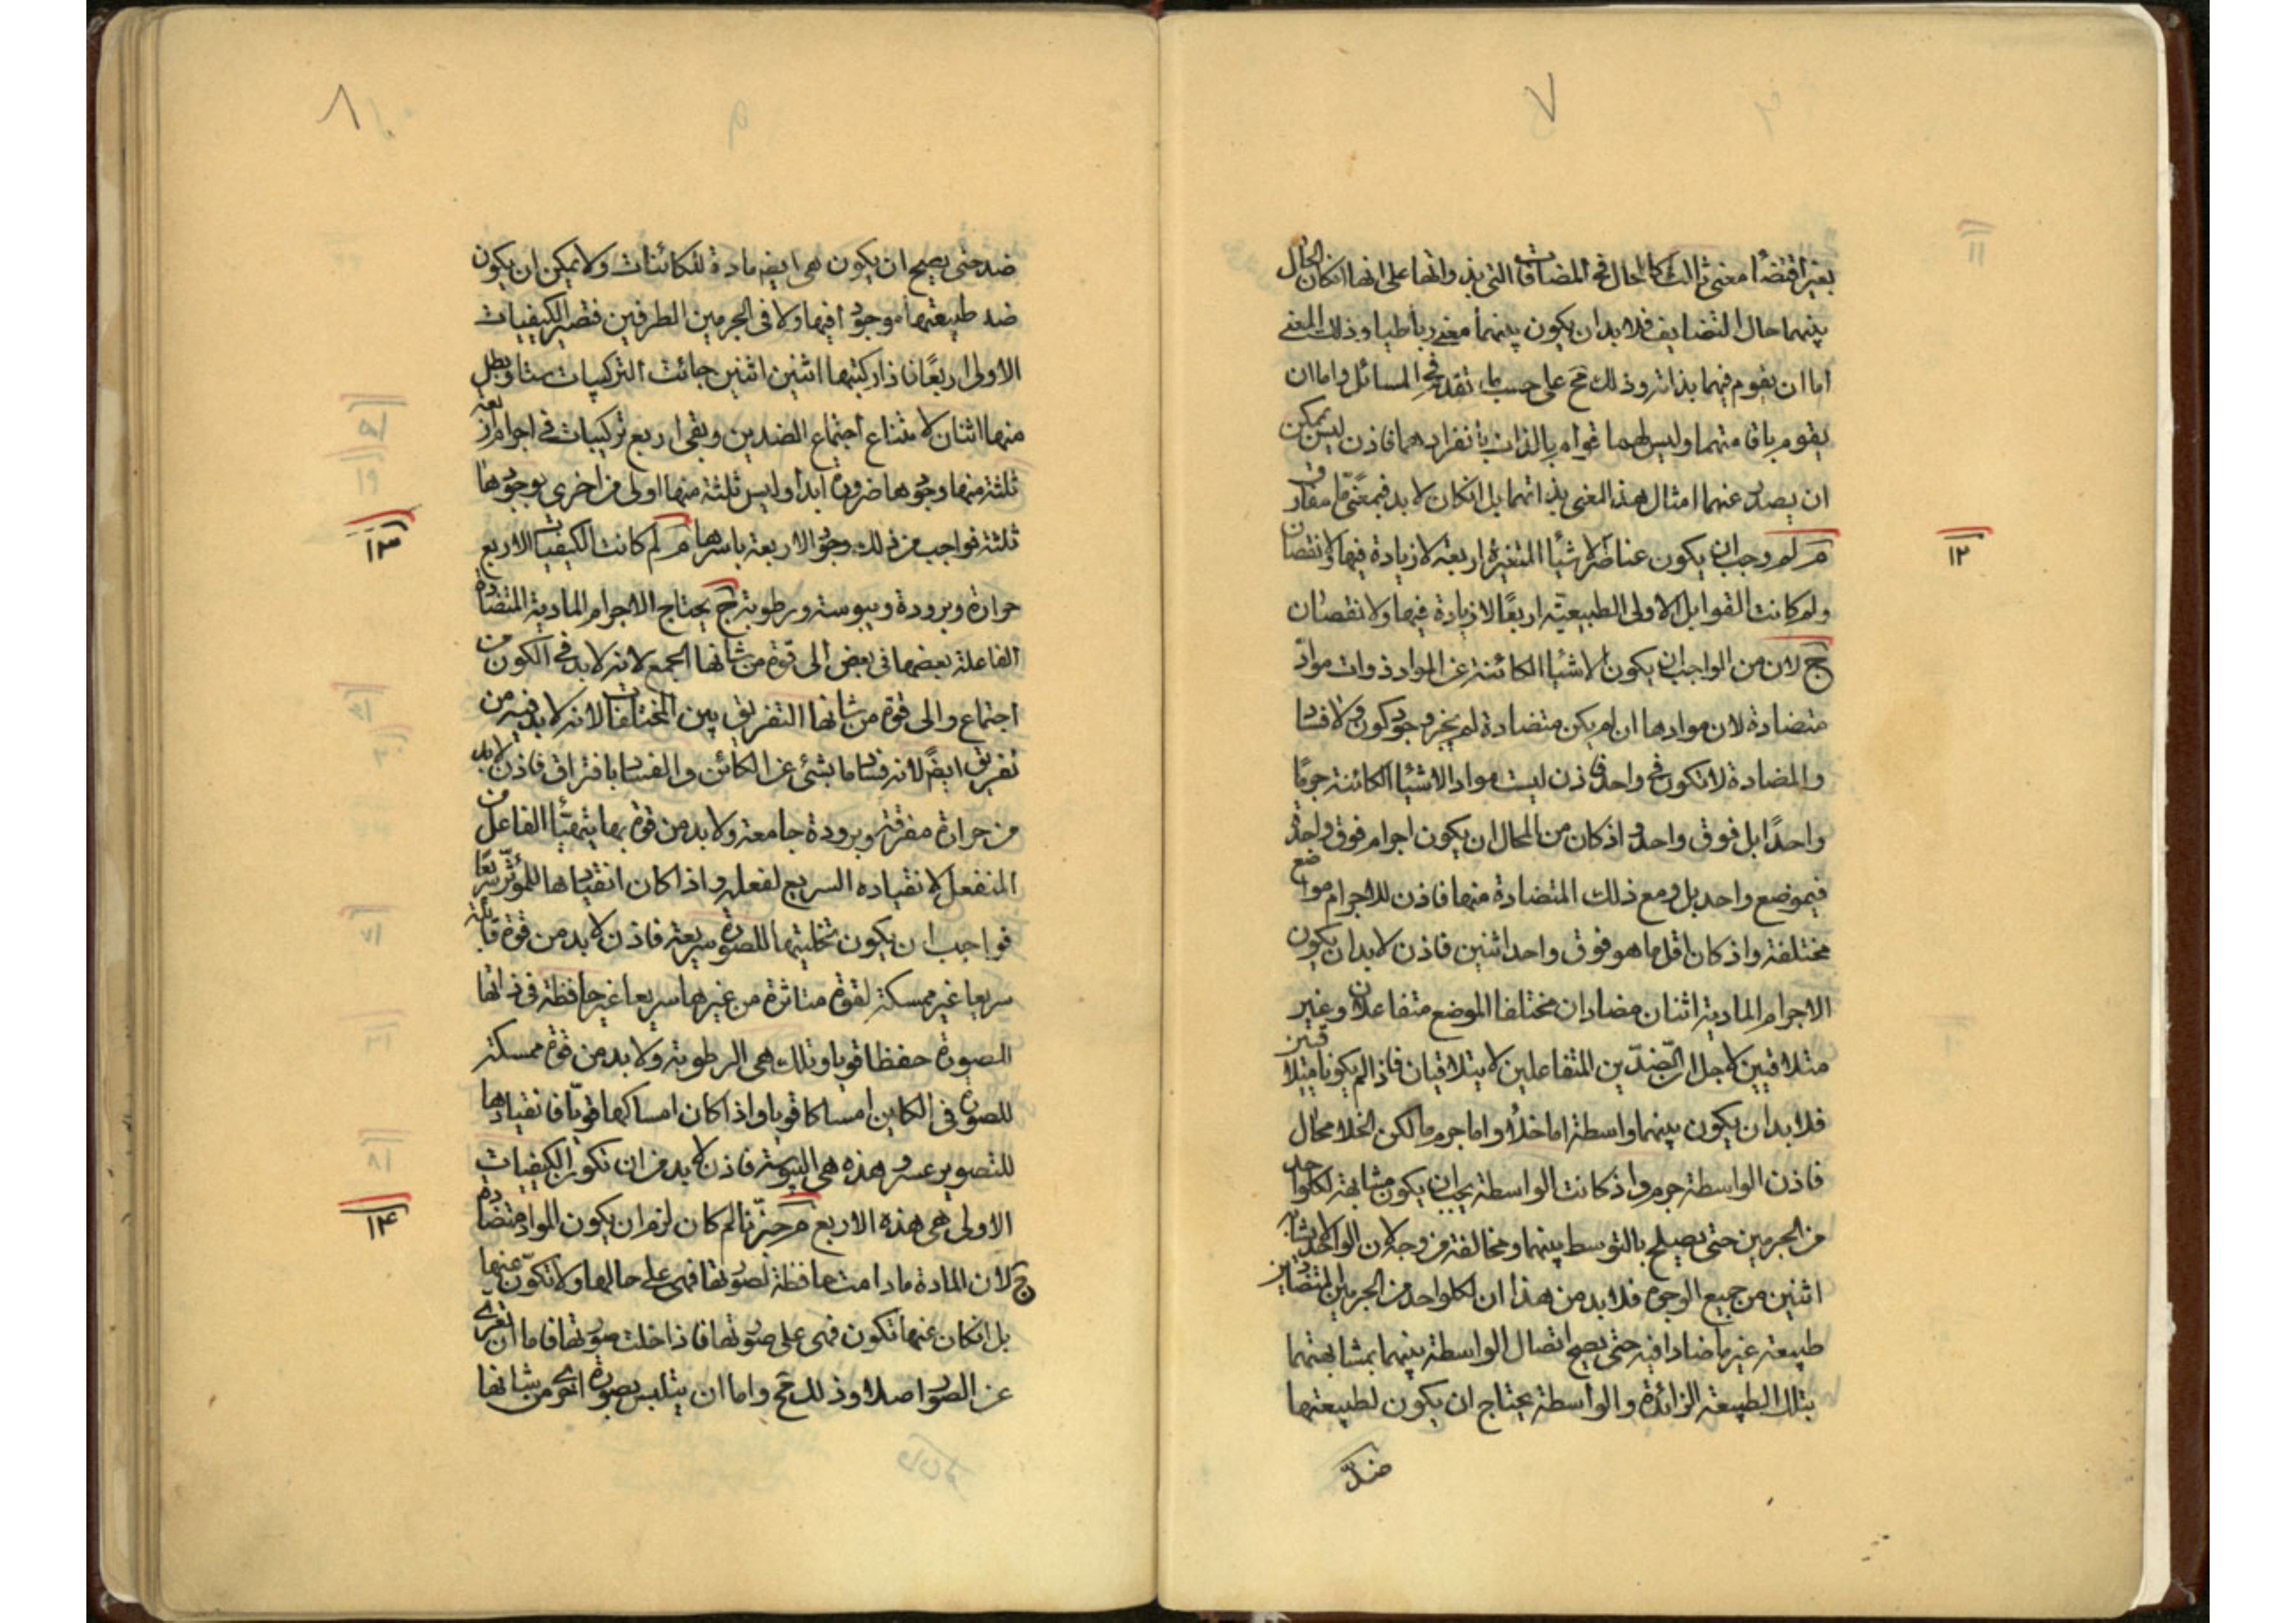 ٧
بغير اقتضاء معنى ثالث كالحال في المضافات التي بذواتها على انها انكان الحال
بينهما حال التضايف فلا بد ان يكون بينهما معنى رباطيا وذلك المعنى
اما ان يقوم فيهما بذاته وذلك مح على حسب ما تقدم في المسائل واما ان
يقوم باقامتهما وليس لهما قوام بالذات بانفرادهما فاذن ليس يمكن
ان يصدر عنهما امثال هذا المعنى بذاتهما بل انكان لا بد فبمعنى ما مفارق
١٢
مـ لم وجب ان يكون عناصر الاشياء المتغيرة اربعة لا زيادة فيها ولا نقصان
ولم كانت القوابل الاولى الطبيعية اربعا لا زيادة فيها ولا نقصان
ج لان من الواجب ان يكون الاشياء الكائنة عن المواد ذوات مواد
متضادة لان موادها ان لم يكن متضادة لم يخر وجود كون ولا فساد
والمضادة لا تكون في واحد فاذن ليست مواد الاشياء الكائنة جرما
واحدا بل فوق واحد واذ كان من المحال ان يكون اجرام فوق واحد
في موضع واحد بل ومع ذلك المتضادة منها فاذن للاجرام مواضع
مختلفة واذ كان اقل ما هو فوق واحد اثنين فاذن لا بد ان يكون
الاجرام المادية اثنان مضادان مختلفا الموضع متفاعلان وغير
متلاقيين لاجل ان الضدين المتفاعلين لا يتلاقيان فاذا لم يكونا متلاقيين
فلا بد ان يكون بينهما واسطة اما خلأ واما جرم ما لكن الخلا محال
فاذن الواسطة جرم واذ كانت الواسطة يجب ان يكون مشابهة لكلواحد
من الجرمين حتى تصلح بالتوسط بينهما ومخالفة من وجه لان الواحد لا يشابه
اثنين من جميع الوجوه فلا بد من هذا ان لكلواحد من الجرمين المتضادين
طبيعة غير ما ضادا فيه حتى يصح اتصال الواسطة بينهما بمشابهتهما
بتلك الطبيعة الزائدة والواسطة يحتاج ان يكون لطبيعتها
ضد
٨
ضد حتى يصح ان يكون هي ايضا مادة للكائنات ولا يمكن ان يكون
ضد طبيعتها موجودا فيها ولا في الجرمين الطرفين فتصير الكيفيات
الاولى اربعا فاذا ركبتها اثنين اثنين جائت التركيبات ستا وبطل
منها اثنان لامتناع اجتماع الضدين وبقى اربع تركيبات في اجرام اربعة
ثلثة منها وجودها ضرورة ابدا وليس ثلثة منها اولى من اخرى بوجودها
١٣
ثلثة فواجب من ذلك وجود الاربعة باسرها مـ لم كانت الكيفيات الاربع
حرارة وبرودة ويبوسة ورطوبة ج يحتاج الاجرام المادية المتضادة
الفاعلة بعضها في بعض الى قوة من شانها الجمع لانه لا بد في الكون من
اجتماع والى قوة من شانها التفريق بين المختلفات لانه لا بد فيه من
تفريق ايضا لانه فساد ما بشئ عن الكائن والفساد بافتراق فاذن لا بد
من حرارة مفرقة وبرودة جامعة ولا بد من قوة بها يتهيأ الفاعل من
المنفعل لانقياده السريع لفعله واذا كان انقيادها للمؤثر سريعا
فواجب ان يكون تخليتها للصورة سريعة فاذن لا بد من قوة قابلة
سريعا غير ممسكة لقوة متاثرة من غيرها سريعا غير حافظة في ذاتها
الصورة حفظا قويا وتلك هي الرطوبة ولا بد من قوة ممسكة
للصورة في الكاين امساكا قويا واذا كان امساكها قويا فانقيادها
للتصوير عسر وهذه هي اليبوسة فاذن لا بد من ان تكون الكيفيات
١٤
الاولى هي هذه الاربع مـ خبرنا لم كان لزم ان يكون المواد متضادة
ج لان المادة ما دامت حافظة لصورتها فهى على حالها ولا تكون عنها
بل انكان عنها تكون فهى على صورتها فاذا خلت صورتها فاما ان تعرى
عن الصور اصلا وذلك مح واما ان يتلبس بصورة اخرى من شانها